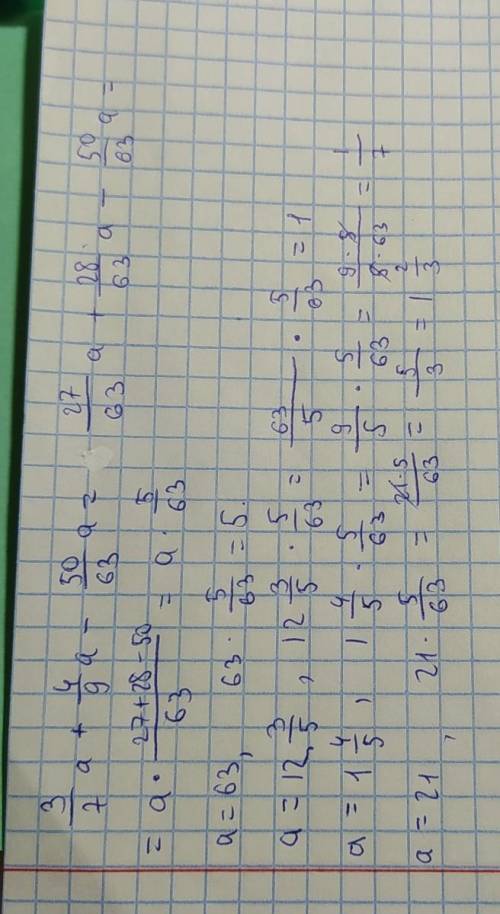 3/7 a + 4/9 a - 50/63 a = 27/63 a + 28/63 a - 50/63 a =
= a · (27+28-50)/63 = a · 5/63
a = 63, 63 · 5/63 = 5.
a = 12 3/5, 12 3/5 · 5/63 = 63/5 · 5/63 = 1
a = 1 4/5, 1 4/5 · 5/63 = 9/5 · 5/63 = (9·8)/(8·63) = 1/7
a = 21, 21 · 5/63 = (21·5)/63 = 5/3 = 1 2/3